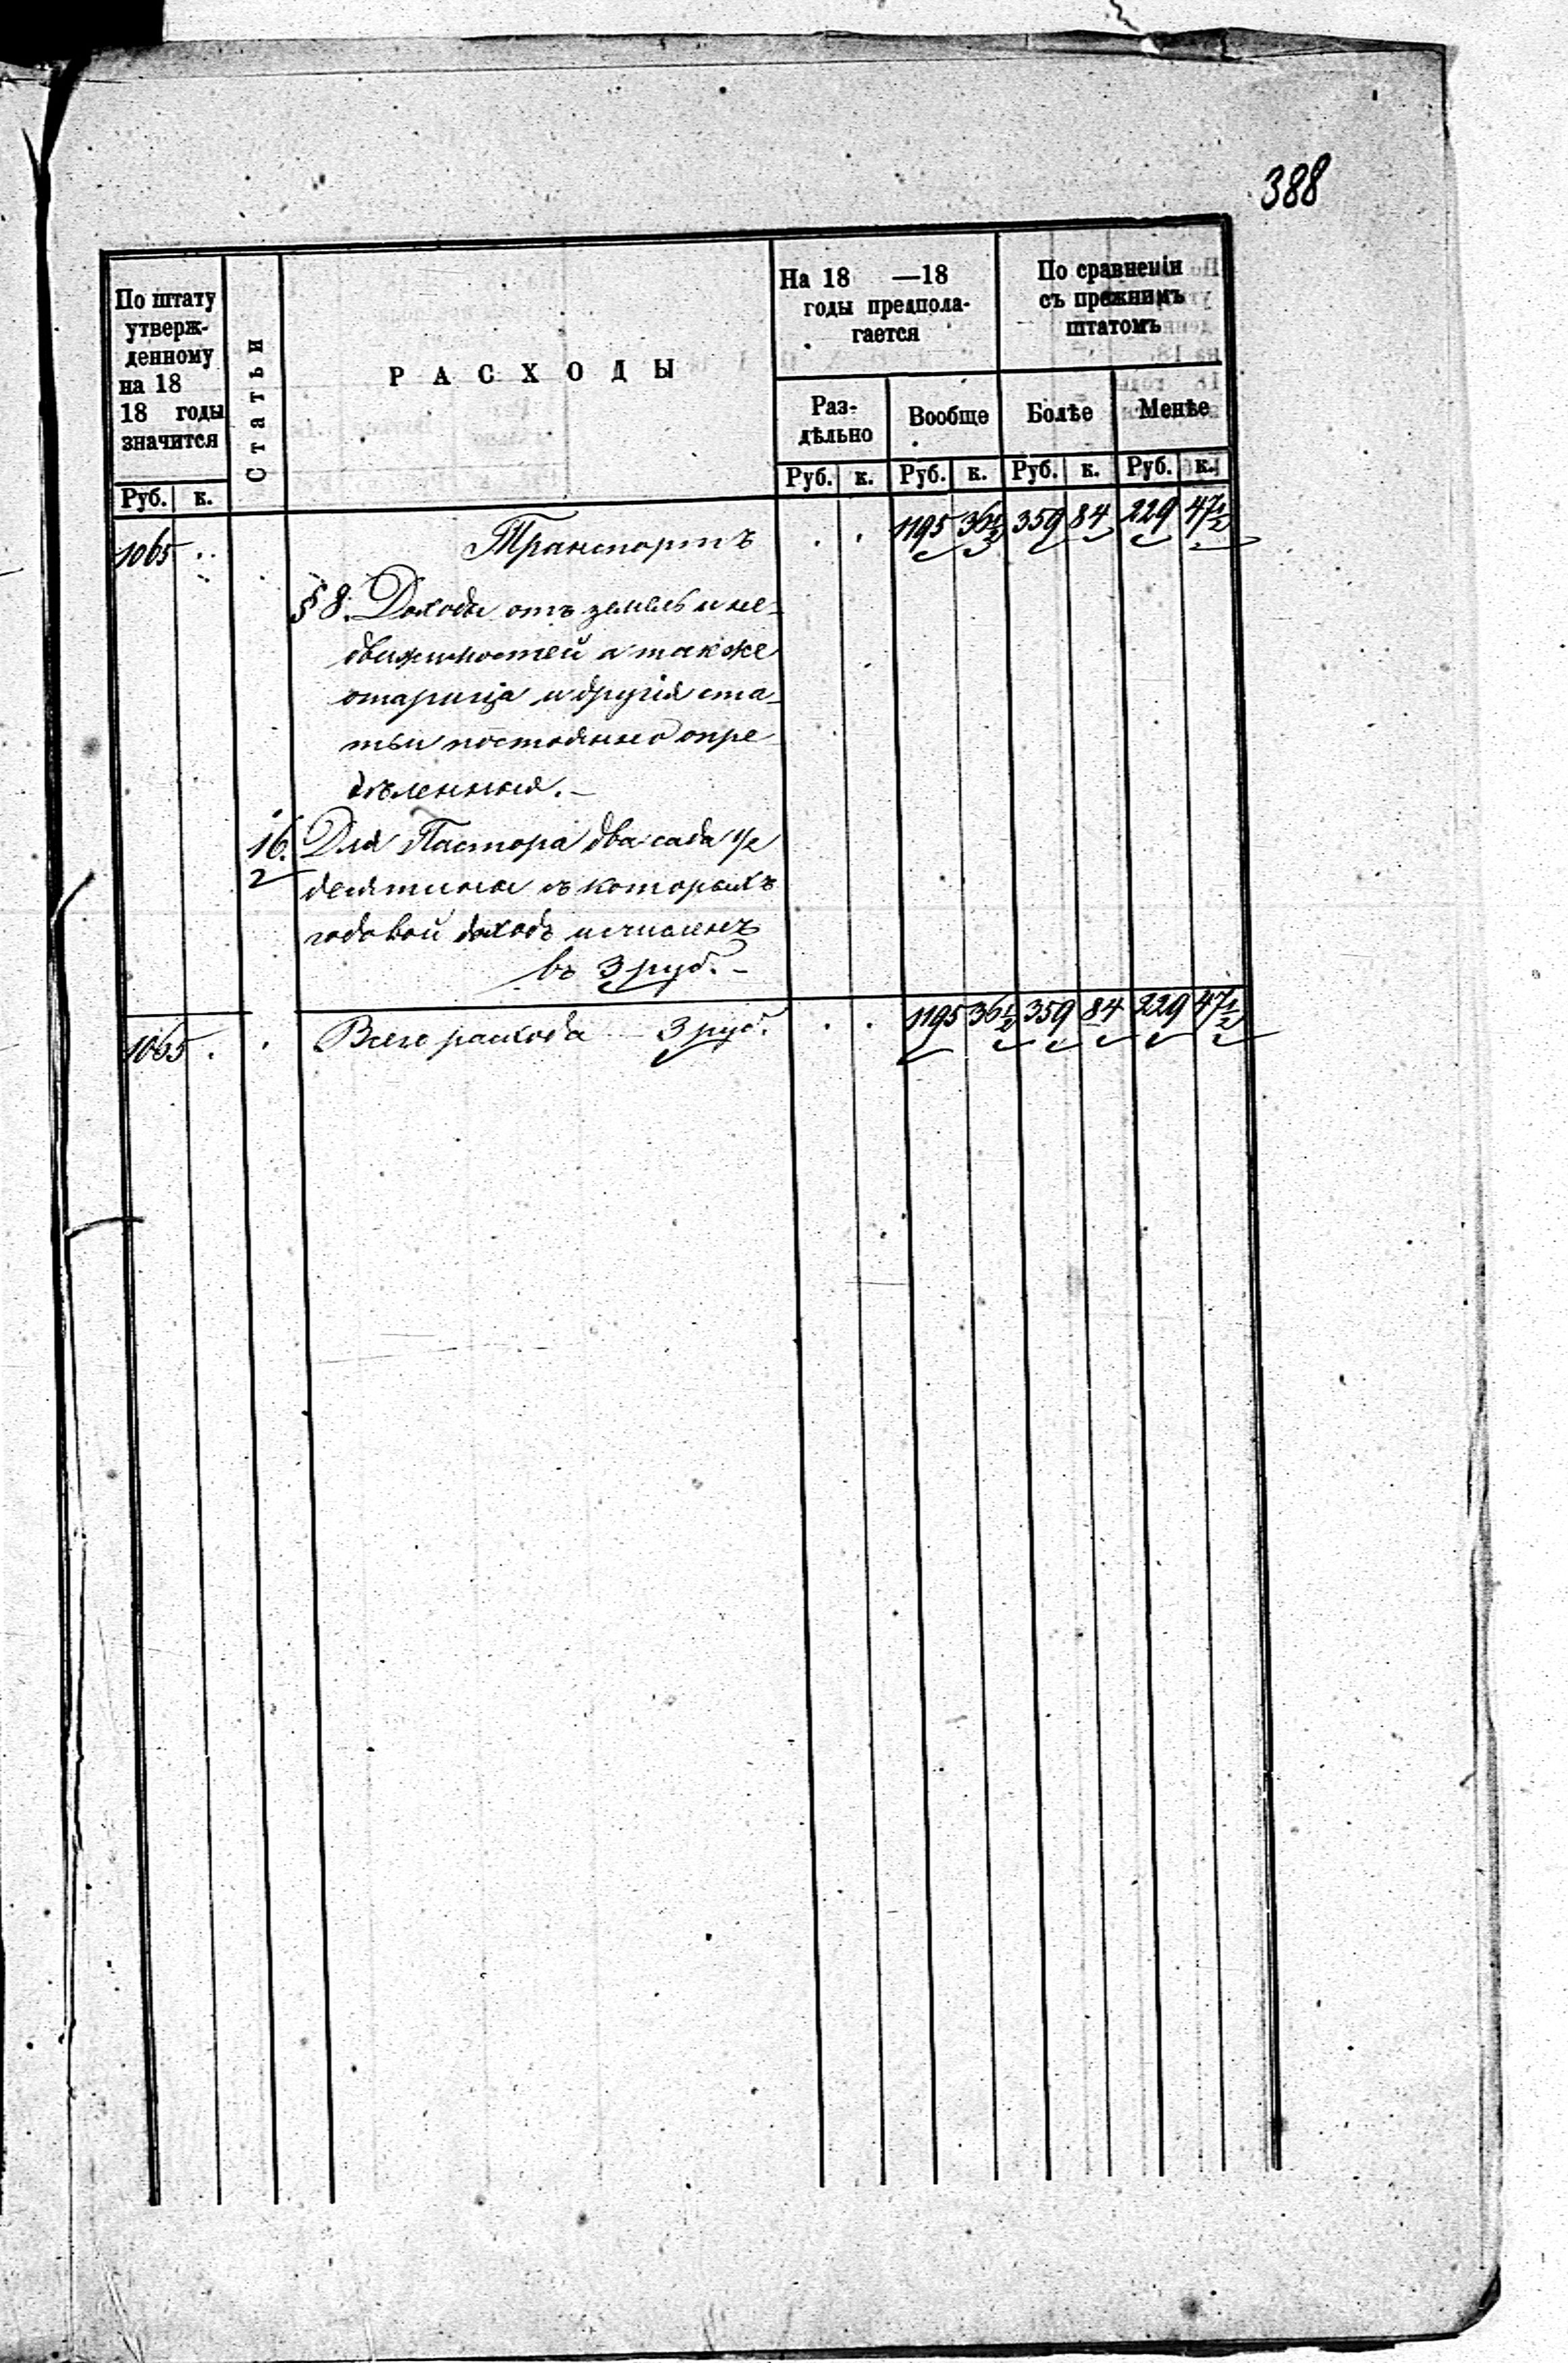 388
По штату
утверж-
денному
на 18
18 годы
значится
Статьи
РАСХОДЫ
На 18 —18
годы предпола-
гается
По сравненiи
съ прежнимъ
штатомъ
Раз-
дѣльно
Вообще
Болѣе
Менѣе
Руб. к.
Руб. к. Руб. к. Руб. к. Руб. к.
1065 Транспортъ 1195 36½ 359 84 229 47½
§ 8. Доходы отъ земель и не-
движимостей а также
и другiя ста-
тьи постоянно опре
дѣленныя.—
16. Для Пастора два сада ½
2
десятины съ которыхъ
годовой доходъ исчисленъ
въ 3 руб.—
1065 Всего расхода 3 руб. 1195 36½ 359 84 229 47½